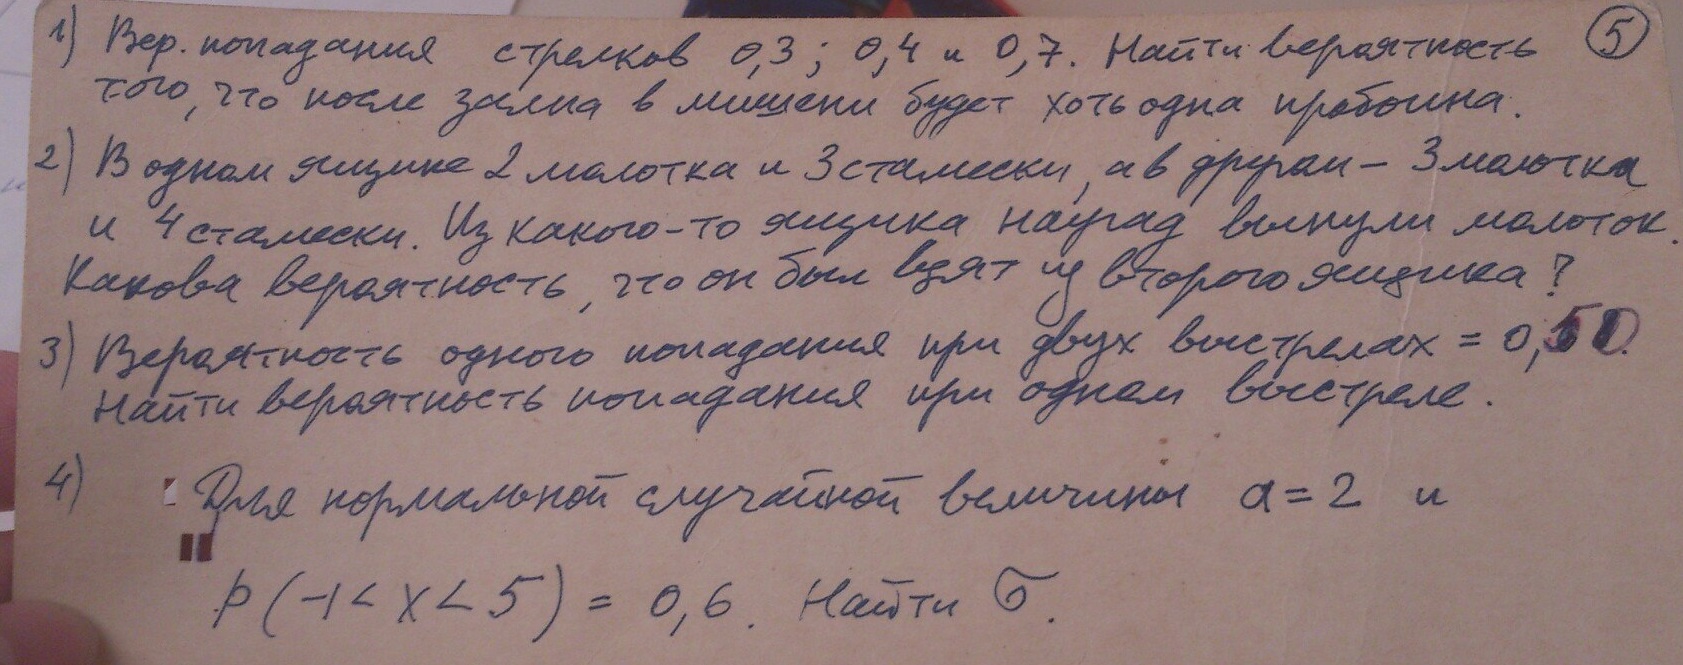 1) Вер. попадания стрелков 0,3; 0,4 и 0,7. Найти вероятность (5)
того, что после залпа в мишени будет хоть одна пробоина.
2) В одном ящике 2 молотка и 3 стамески, а в другом – 3 молотка
и 4 стамески. Из какого-то ящика наугад вынули молоток.
Какова вероятность, что он был взят из второго ящика?
3) Вероятность одного попадания при двух выстрелах = 0,50.
Найти вероятность попадания при одном выстреле.
4) Для нормальной случайной величины a = 2 и
p(-1 < x < 5) = 0,6. Найти σ.